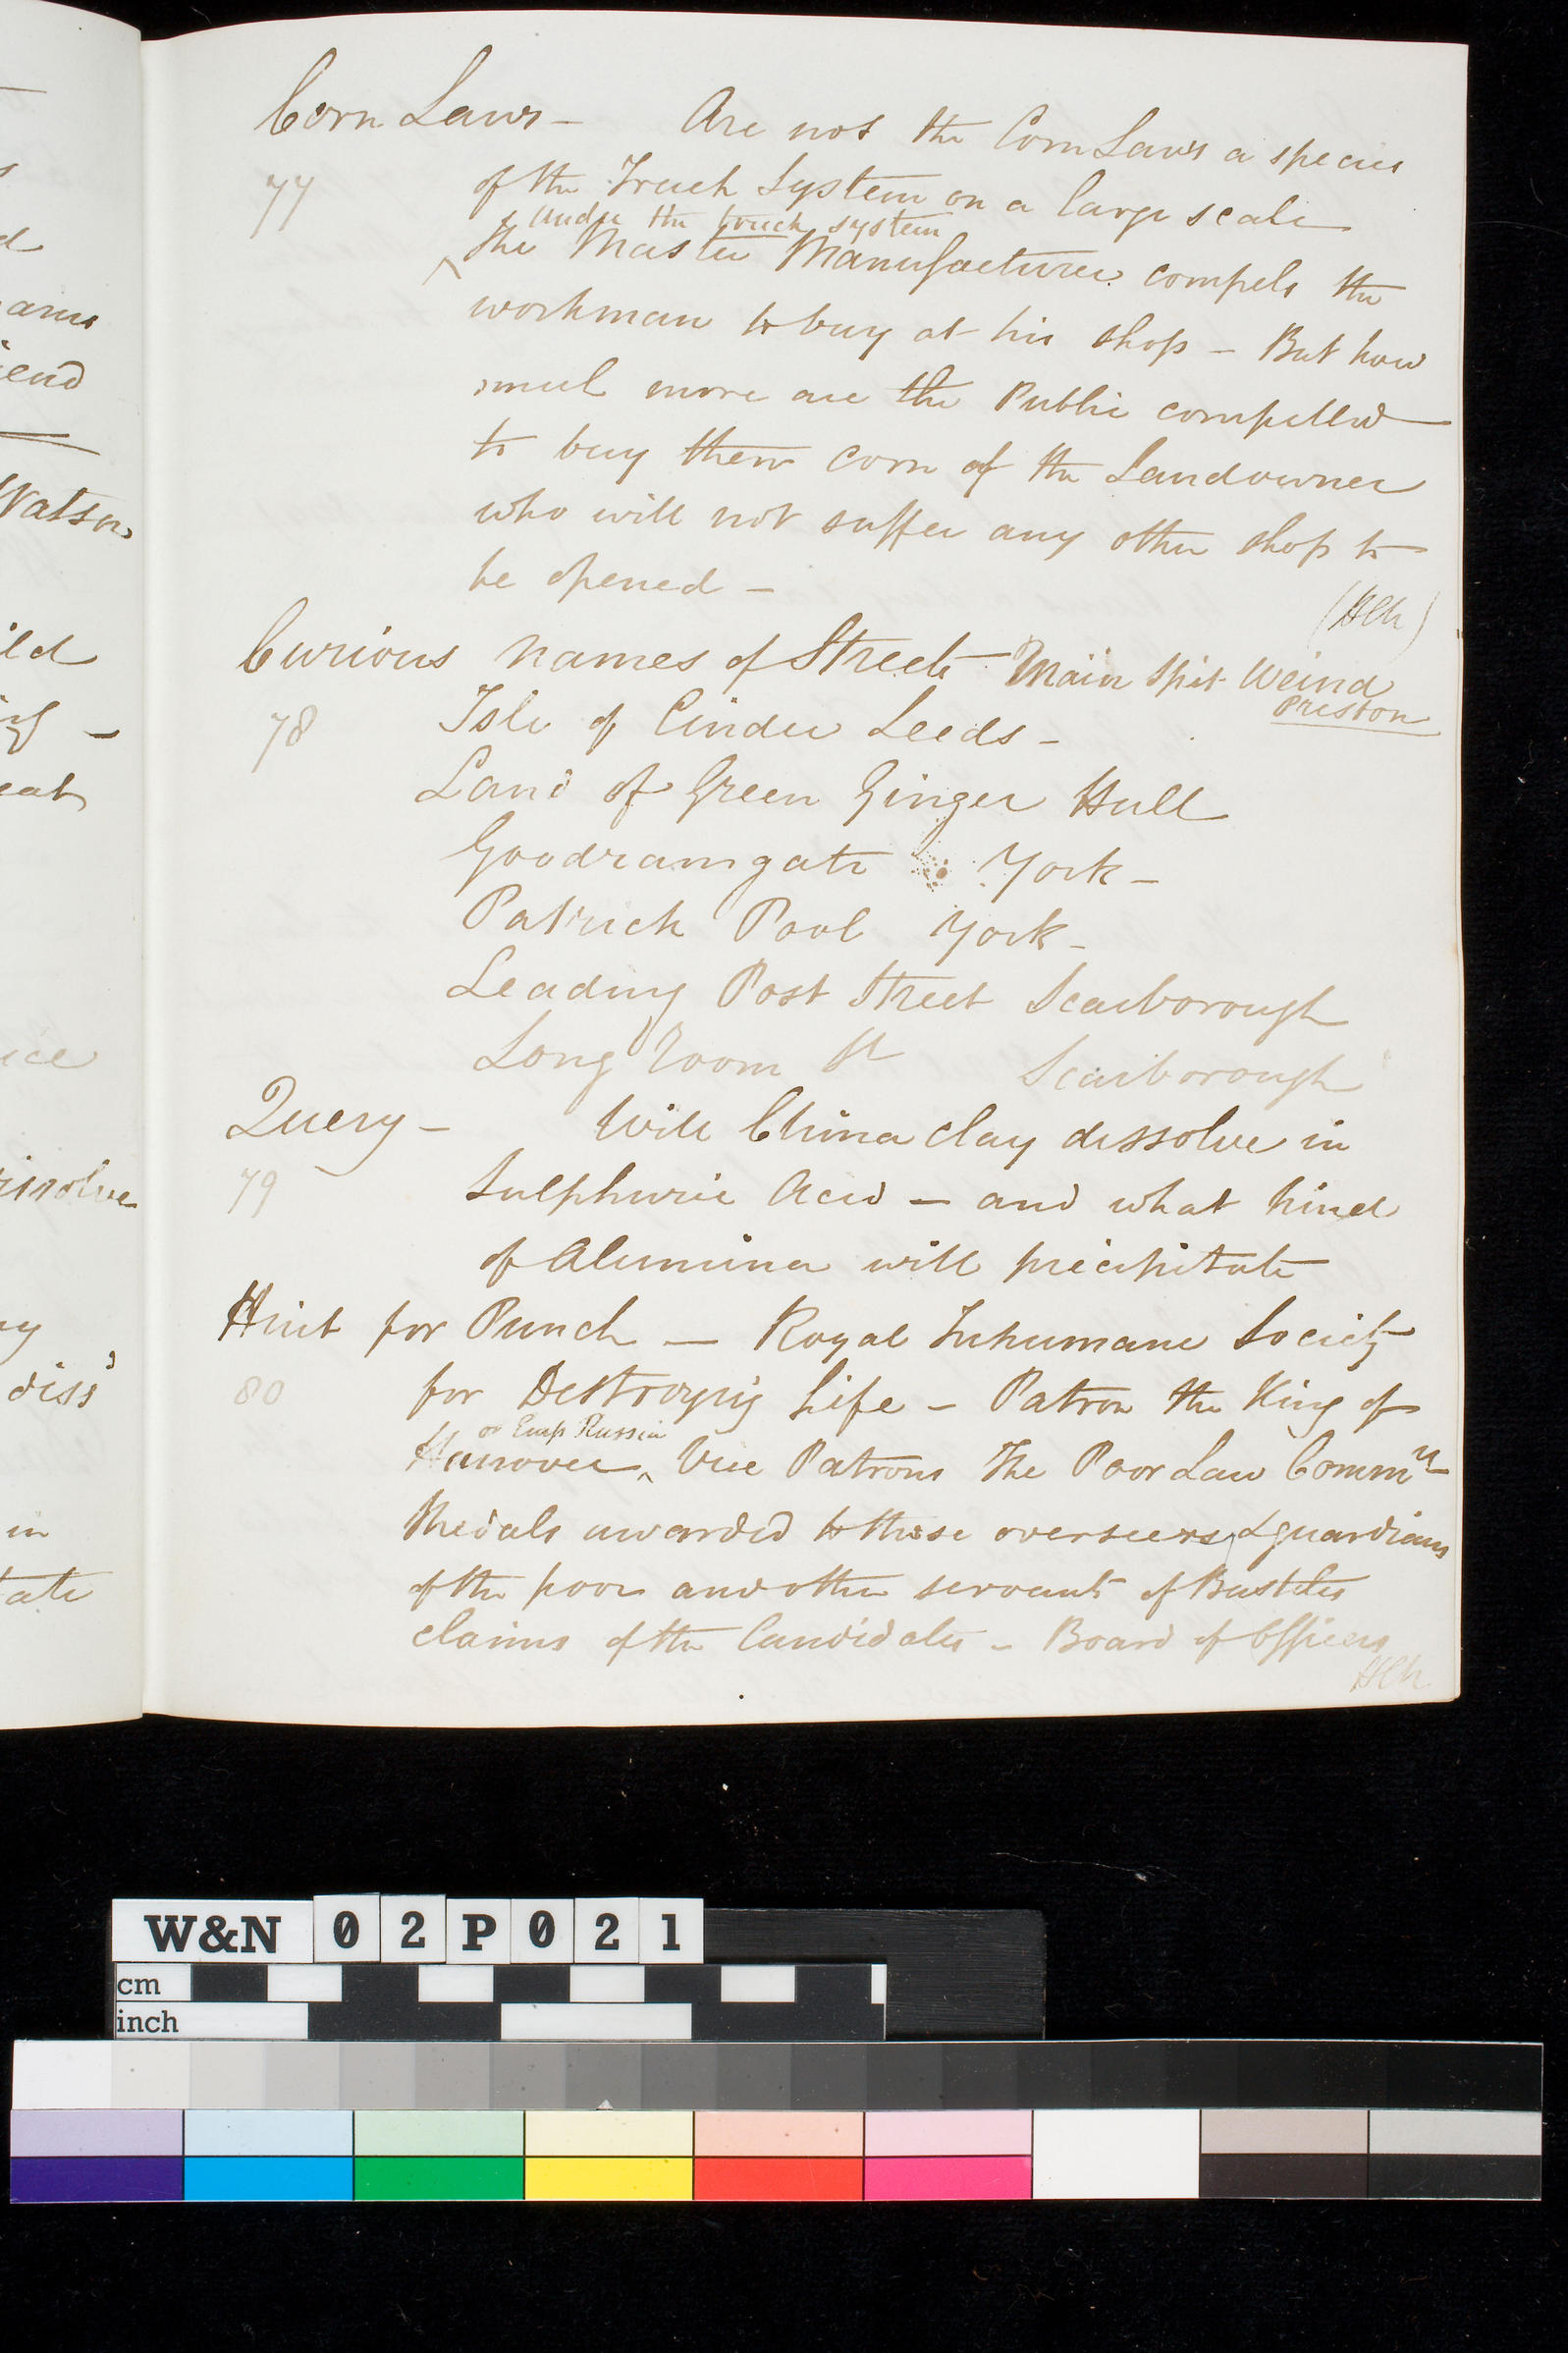 Corn Laws — Are not the Corn Laws a species
77 of the Truck System on a large scale
under the truck system
The Master Manufacturer compels the
workman to buy at his shop — But how
much more are the Public compelled
to buy their corn of the Landowner
who will not suffer any other shop to
be opened —
(HCh)
Curious names of Streets Main Spit Weind
Preston
78 Isle of Cinder Leeds —
Land of Green Ginger Hull
Goodramgate York —
Patrick Pool York —
Leading Post Street Scarborough
Long Room St Scarborough
Query — Will China Clay dissolve in
79 Sulphuric Acid — and what kind
of Alumina will precipitate
Hint for Punch — Royal Inhumane Society
80 for Destroying Life — Patron the King of
or Emp Russia
Hanover ‸ Vice Patrons The Poor Law Commrs
Medals awarded to those overseers & guardians
of the poor and other servants of Bastiles
claims of the Candidates — Board of Officers
HCh
Watson
W&N 02P021
cm
inch